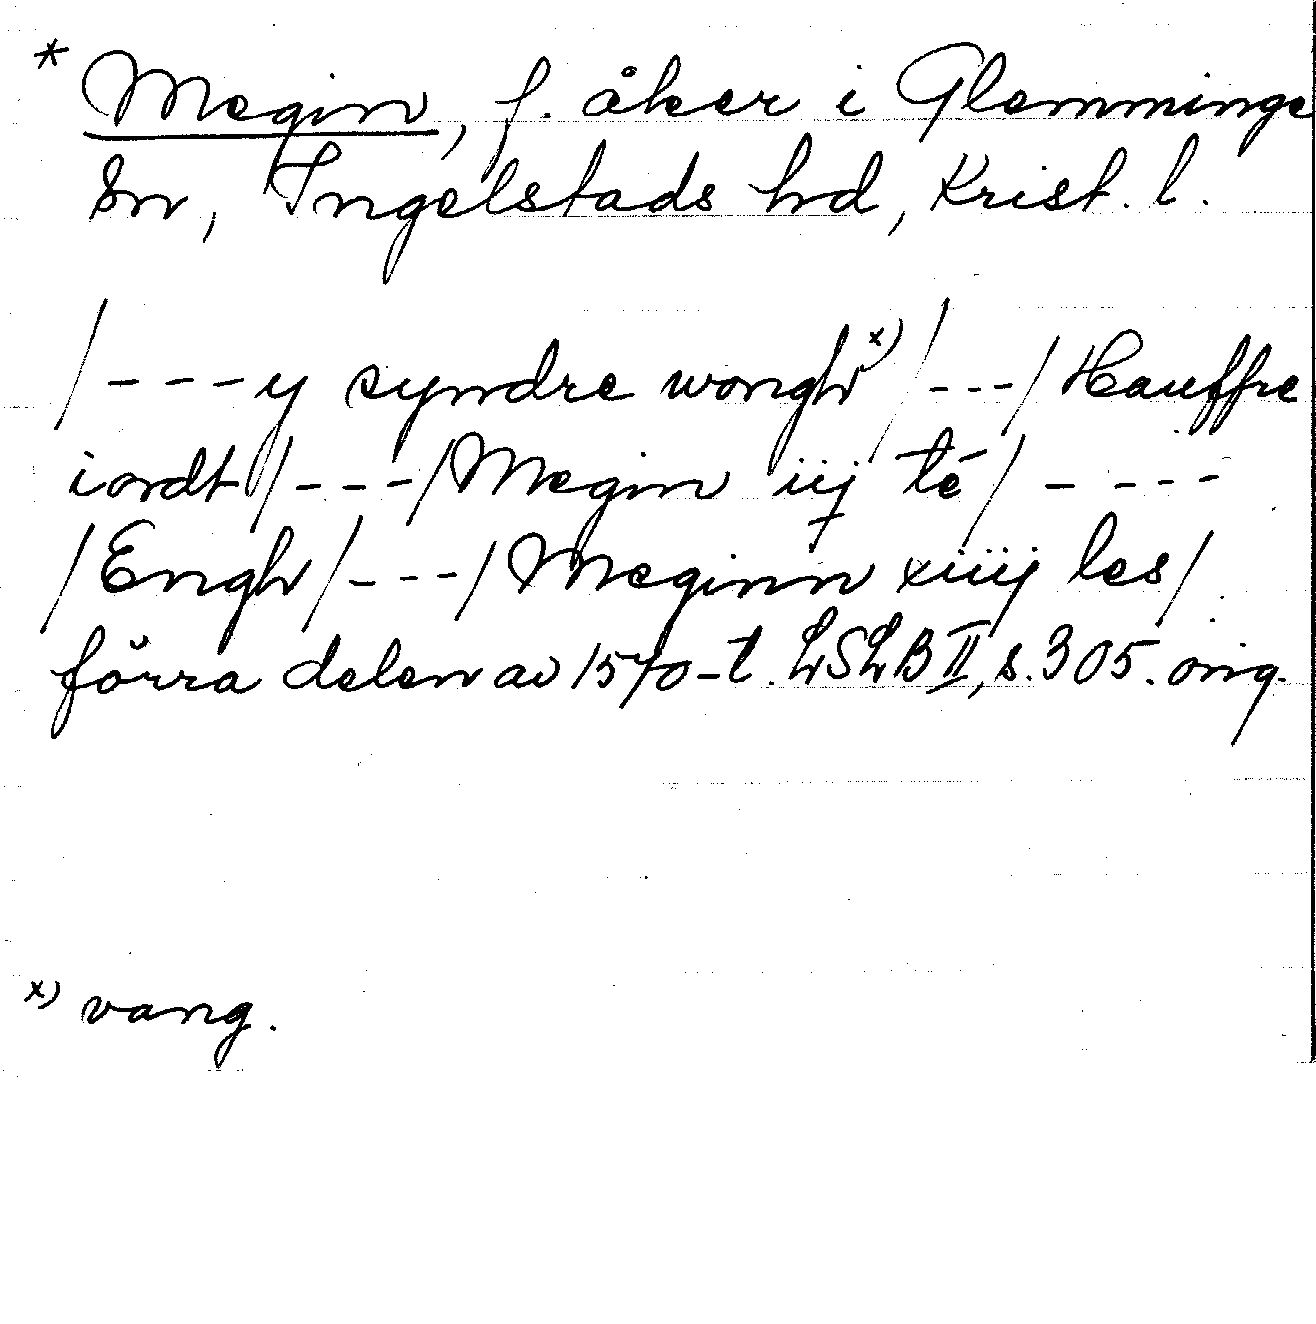 * Megin, f. åker i Glemminge
sn, Ingelstads hd, Krist. l.
/---y syndre wongh x) /---/ Hauffre
iordt /---/ Megin iij té /----
/Engh/---/Meginn xiiij les/
förra delen av 1570-t. LSLB II, s. 305. orig.
x) vang.